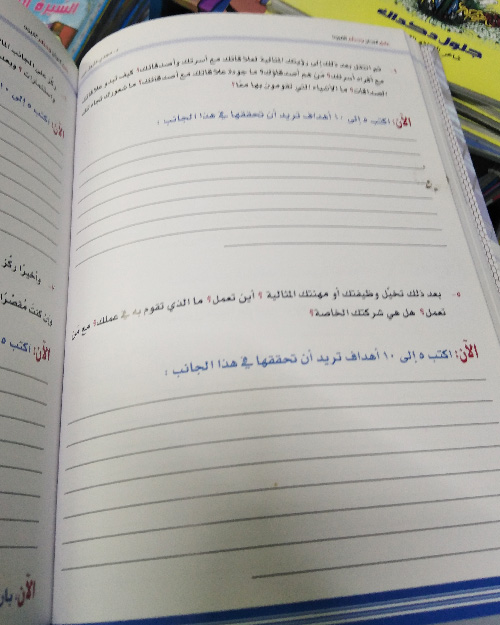 ٤- ثم انتقل بعد ذلك إلى رؤيتك المثالية لعلاقاتك مع أسرتك وأصدقائك؟ كيف تبدو علاقاتك
مع أفراد أسرتك؟ من هم أصدقاؤك؟ ما جودة علاقاتك مع أصدقائك؟ ما شعورك تجاه تلك
الصداقات؟ ما الأشياء التي تقومون بها معًا؟
الآن: اكتب ٥ إلى ١٠ أهداف تريد أن تحققها في هذا الجانب :
٥- بعد ذلك تخيَّل وظيفتك أو مهنتك المثالية ؟ أين تعمل؟ ما الذي تقوم به في عملك؟ مع من
تعمل؟ هل هي شركتك الخاصة؟
الآن: اكتب ٥ إلى ١٠ أهداف تريد أن تحققها في هذا الجانب :
ركز على الجانب
الآن: اكتب ٥ إلى ١٠
وأخيرًا ركّز
وإن كنت مُقصّرًا
الآن: اكتب ٥
الآن:
جلول دحدداله
السيرة